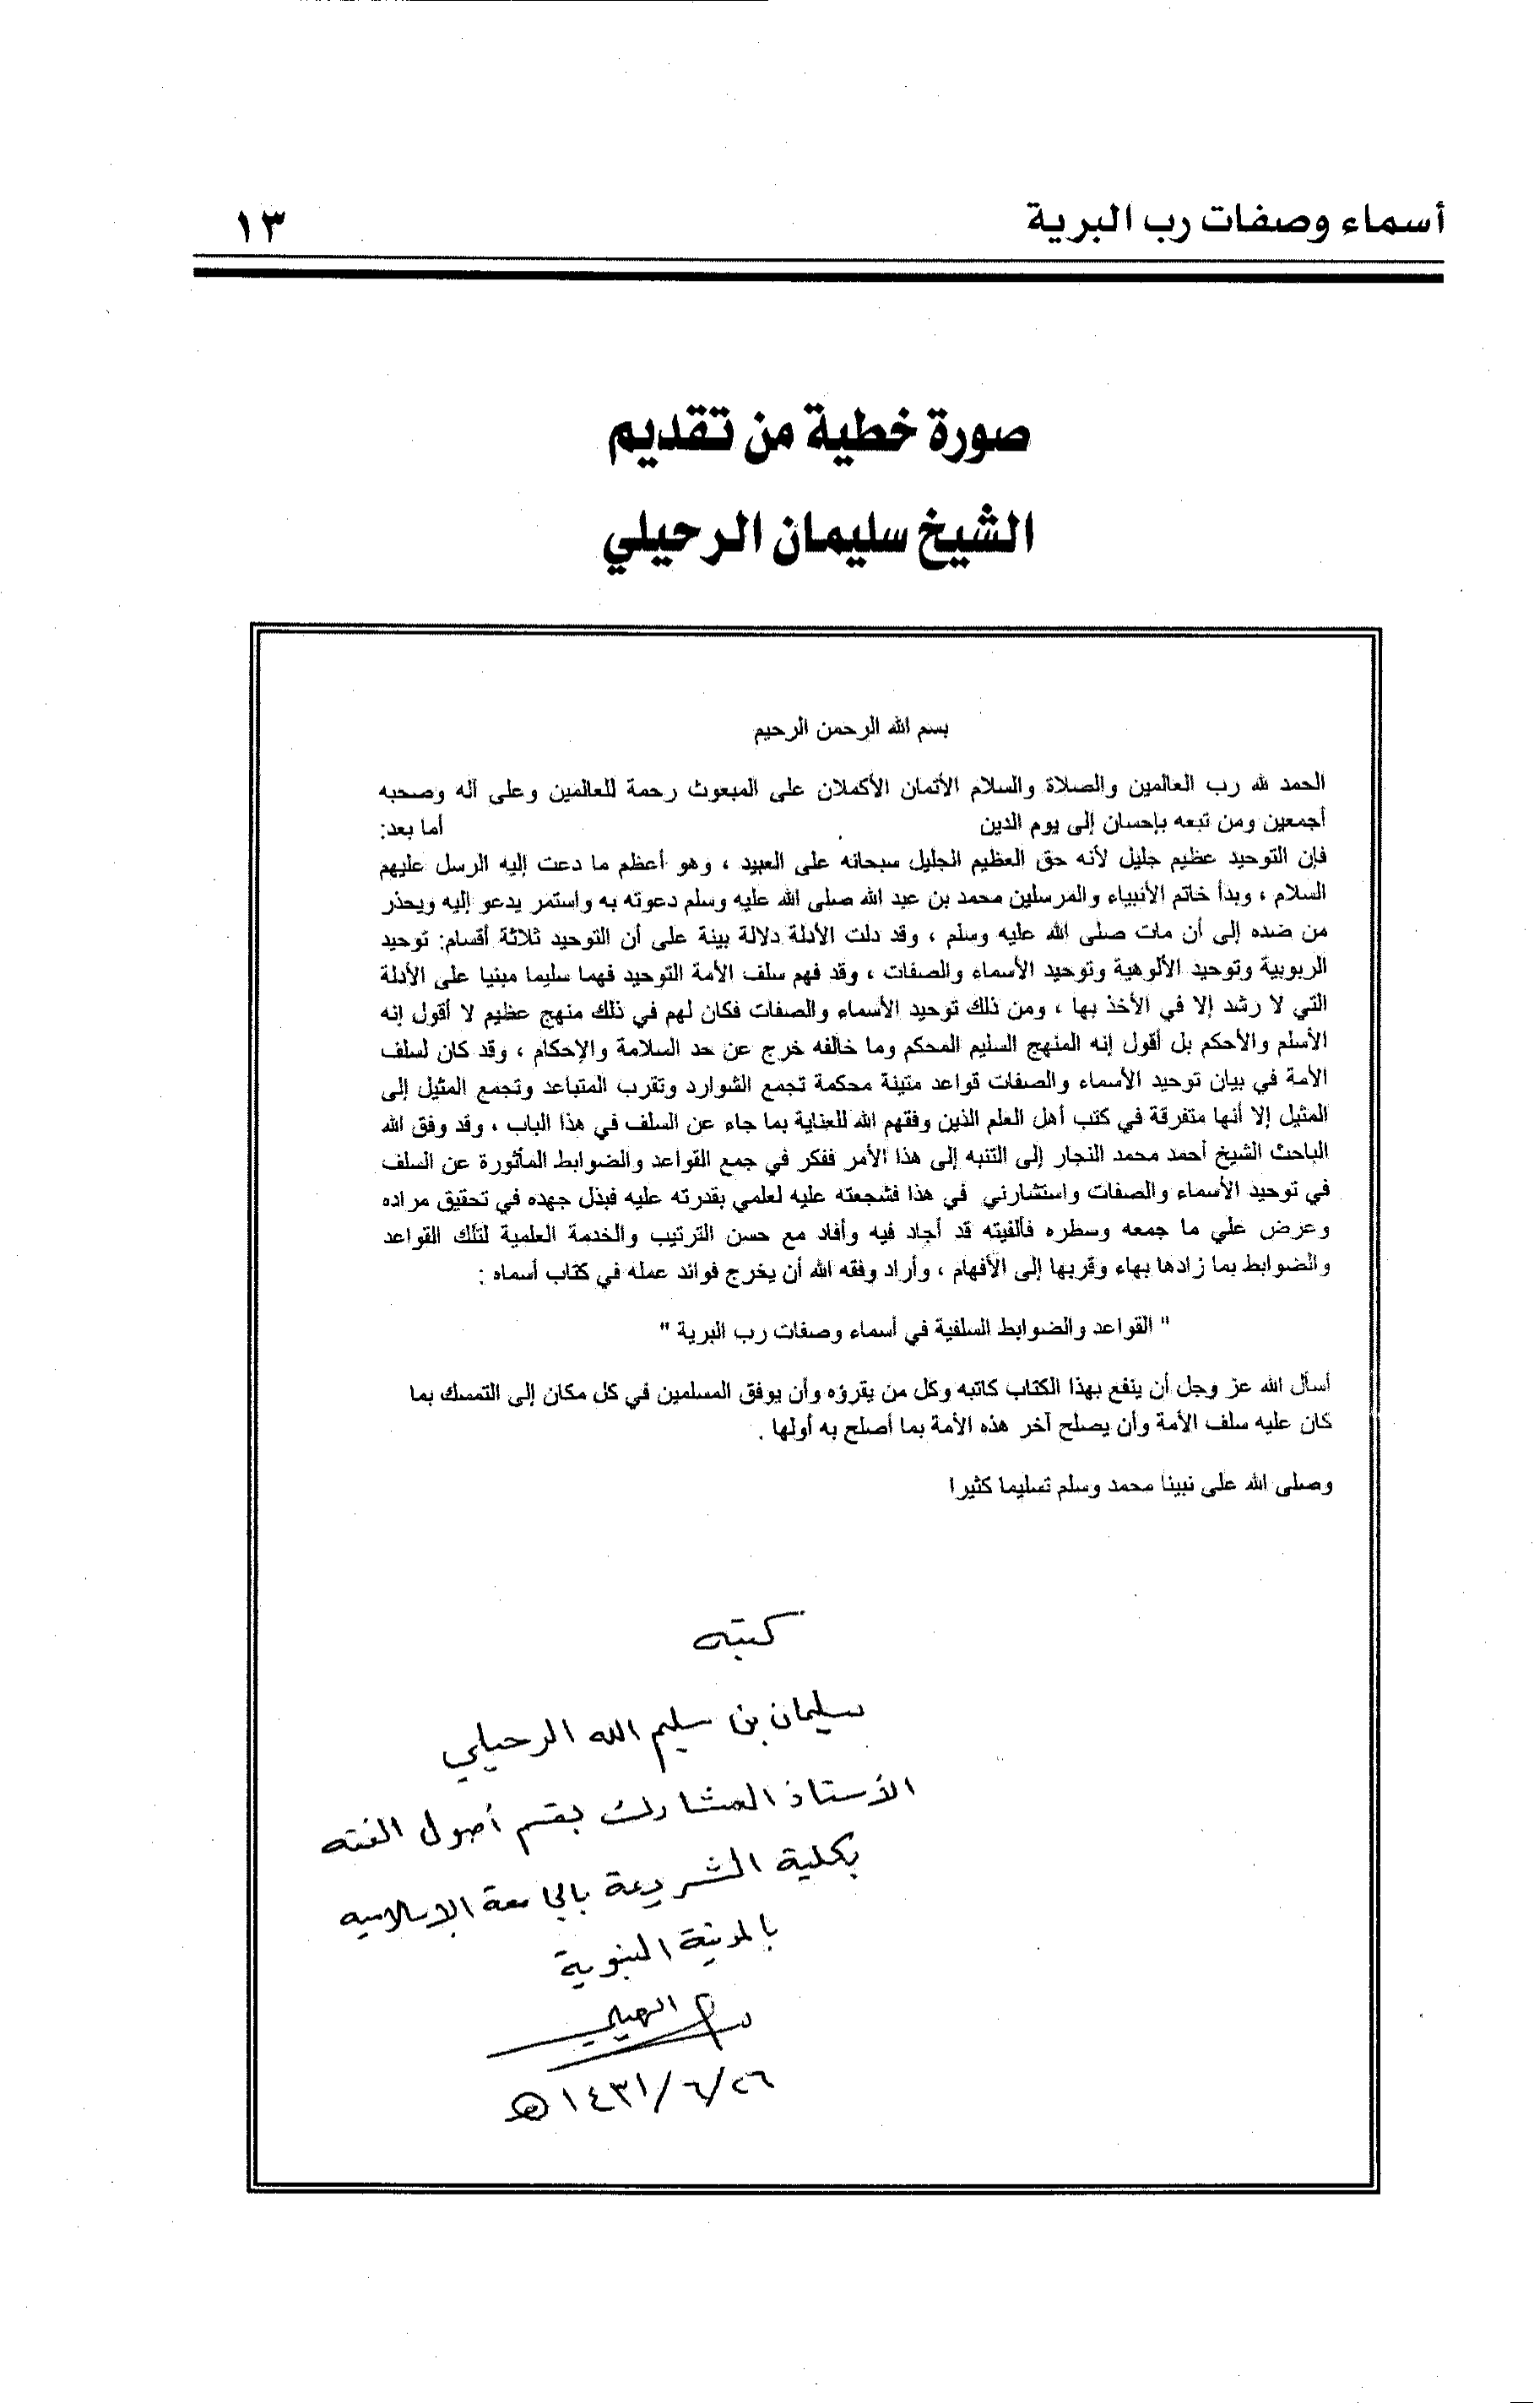 أسماء وصفات رب البرية
١٣
صورة خطية من تقديم
الشيخ سليمان الرحيلي
بسم الله الرحمن الرحيم
الحمد لله رب العالمين والصلاة والسلام الأتمان الأكملان على المبعوث رحمة للعالمين وعلى آله وصحبه
أجمعين ومن تبعه بإحسان إلى يوم الدين أما بعد:
فإن التوحيد عظيم جليل لأنه حق العظيم الجليل سبحانه على العبيد ، وهو أعظم ما دعت إليه الرسل عليهم
السلام ، وبدأ خاتم الأنبياء والمرسلين محمد بن عبد الله صلى الله عليه وسلم دعوته به واستمر يدعو إليه ويحذر
من ضده إلى أن مات صلى الله عليه وسلم ، وقد دلت الأدلة دلالة بينة على أن التوحيد ثلاثة أقسام: توحيد
الربوبية وتوحيد الألوهية وتوحيد الأسماء والصفات ، وقد فهم سلف الأمة التوحيد فهما سليما مبنيا على الأدلة
التي لا رشد إلا في الأخذ بها ، ومن ذلك توحيد الأسماء والصفات فكان لهم في ذلك منهج عظيم لا أقول إنه
الأسلم والأحكم بل أقول إنه المنهج السليم المحكم وما خالفه خرج عن حد السلامة والإحكام ، وقد كان لسلف
الأمة في بيان توحيد الأسماء والصفات قواعد متينة محكمة تجمع الشوارد وتقرب المتباعد وتجمع المثيل إلى
المثيل إلا أنها متفرقة في كتب أهل العلم الذين وفقهم الله للعناية بما جاء عن السلف في هذا الباب ، وقد وفق الله
الباحث الشيخ أحمد محمد النجار إلى التنبه إلى هذا الأمر ففكر في جمع القواعد والضوابط المأثورة عن السلف
في توحيد الأسماء والصفات واستشارني في هذا فشجعته عليه لعلمي بقدرته عليه فبذل جهده في تحقيق مراده
وعرض علي ما جمعه وسطره فألفيته قد أجاد فيه وأفاد مع حسن الترتيب والخدمة العلمية لتلك القواعد
والضوابط بما زادها بهاء وقربها إلى الأفهام ، وأراد وفقه الله أن يخرج فوائد عمله في كتاب أسماه :
" القواعد والضوابط السلفية في أسماء وصفات رب البرية "
أسأل الله عز وجل أن ينفع بهذا الكتاب كاتبه وكل من يقرؤه وأن يوفق المسلمين في كل مكان إلى التمسك بما
كان عليه سلف الأمة وأن يصلح آخر هذه الأمة بما أصلح به أولها .
وصلى الله على نبينا محمد وسلم تسليما كثيرا
كتبه
سليمان بن سليم الله الرحيلي
الأستاذ المشارك بقسم أصول الفقه
بكلية الشريعة بالجامعة الإسلامية
بالمدينة النبوية
٢٦/٦/١٤٣١هـ